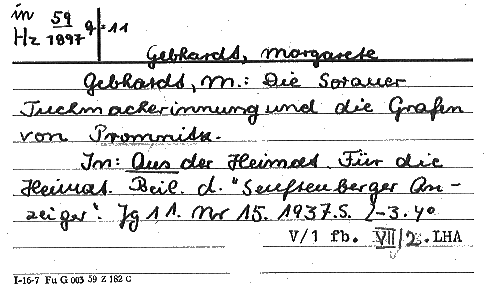 in 59 q = 11
Hz 1897
Gebhardt, Margarete
Gebhardt, M.: Die Sorauer
Tuchmacherinnung und die Grafen
von Promnitz.
In: Aus der Heimat. Für die
Heimat. Beil. d. "Senftenberger An-
zeiger". Jg 11. Nr 15. 1937. S. 2-3. 4°
V/1 fb. VII/2. LHA
I-16-7 Fu G 003 59 Z 182 C